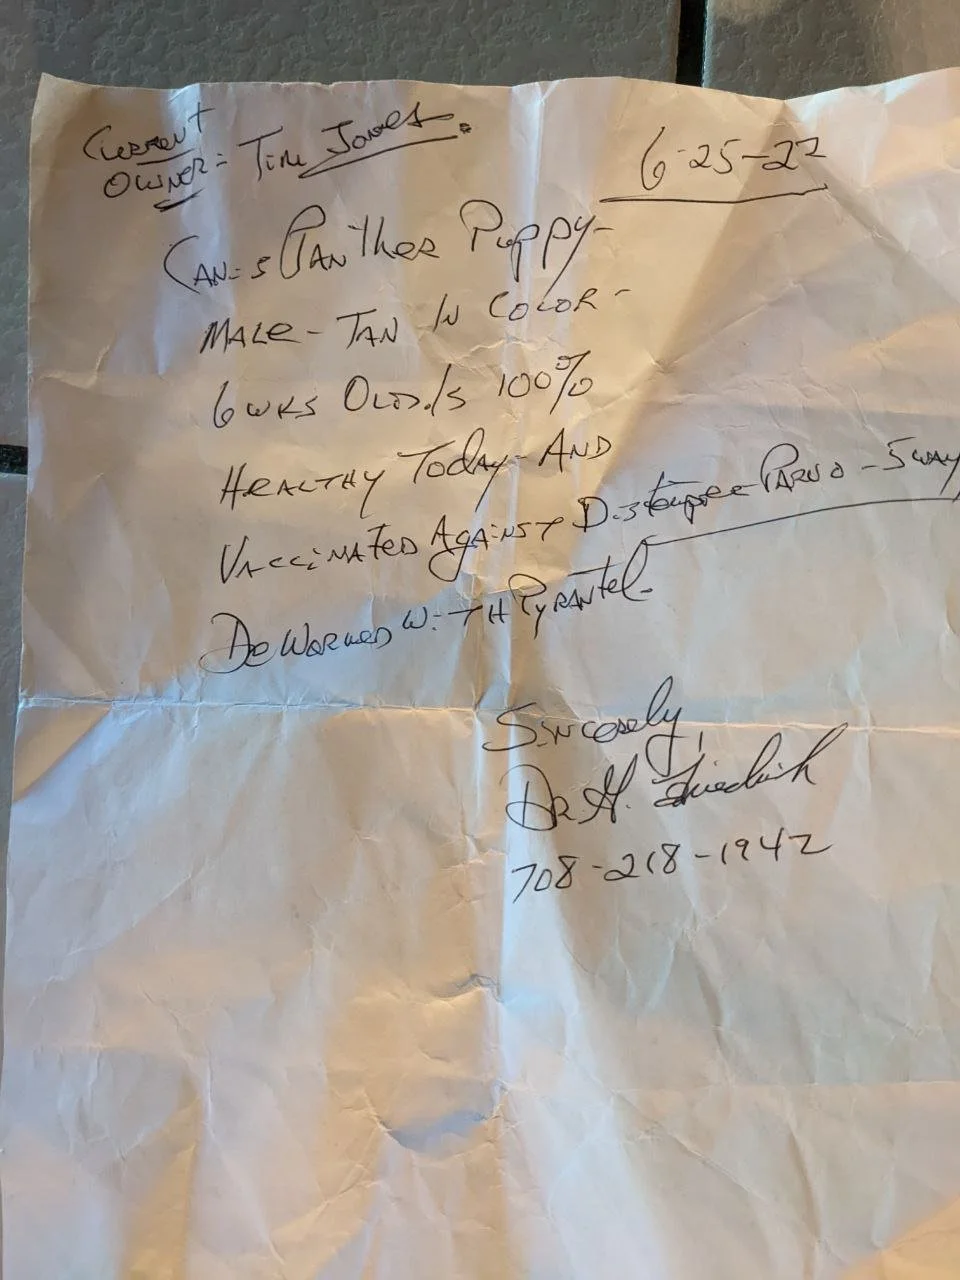 Current
Owner = Tim Jones.
6-25-22
Canis Panther Puppy-
Male - Tan In Color -
6 wks Old. Is 100%
Healthy Today - And
Vaccinated Against Distemper - Parvo - 5 way
DeWormed With Pyrantel.
Sincerely,
Dr. H.
708-218-1942